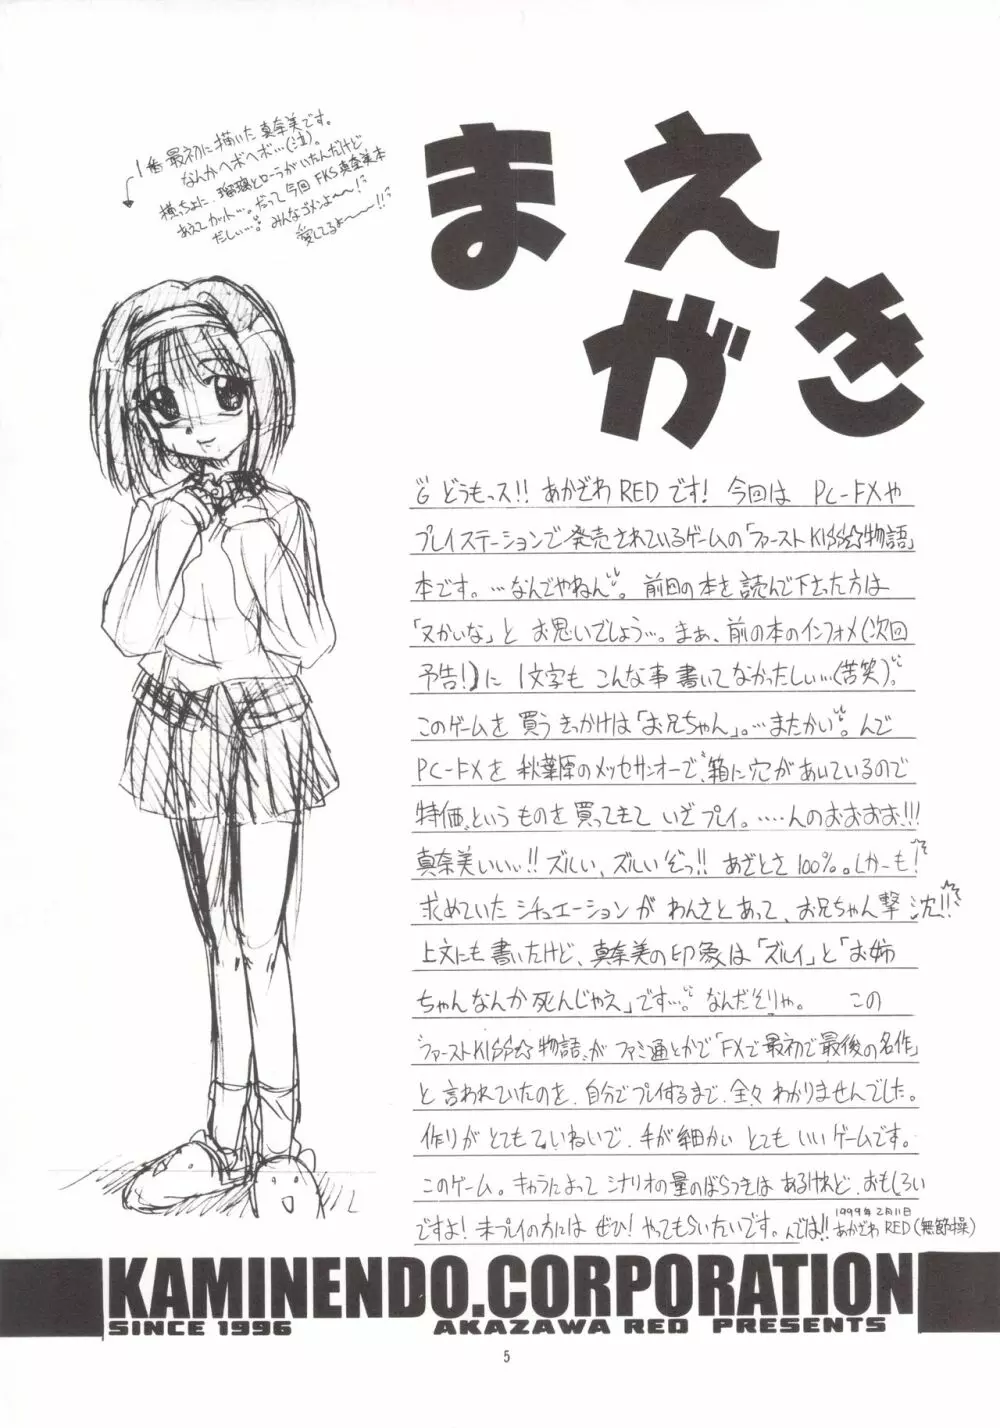 まえ
がき
1番最初に描いた真奈美です。
なんかヘボヘボ…(泣)。
横っちょに、瑠璃とローラがいたんだけど
あえてカット…。だって今回FKS真奈美本
だしぃ…。みんなゴメンよ〜〜!
愛してるよ〜〜〜!!
どうもっス!! あかざわREDです! 今回は PC-FXや
プレイステーションで発売されているゲームの「ファーストKISS☆物語」
本です。…なんでやねん。前回の本を読んで下さった方は
「又かいな」と お思いでしょう…。まぁ、前の本のインフォメ(次回
予告!)に 1文字も こんな事 書いてなかったしぃ…(苦笑)。
このゲームを 買う きっかけは「お兄ちゃん」。…またかい。んで
PC-FXを 秋葉原のメッセサンオーで〝箱に穴があいているので
特価〟という ものを 買ってきて いざプレイ。……んのおおおお!!!
真奈美いいぃ!! ズルい、ズルいぞっ!! あざとさ 100%。しかーも!
求めていた シチュエーションが わんさとあって、お兄ちゃん撃沈!!
上文にも 書いたけど、真奈美の印象は「ズルイ」と「お姉
ちゃんなんか 死んじゃえ」です…。なんだそりゃ。 この
〝ファーストKISS☆物語〟が ファミ通とかで「FXで最初で最後の名作」
と 言われていたのを、自分でプレイするまで、全々 わかりませんでした。
作りが とても ていねいで、手が細かい とても いいゲームです。
このゲーム。キャラによって シナリオの量のばらつきは あるけれど、おもしろい
ですよ! 未プレイの方には ぜひ! やってもらいたいです。んでは!!
1999年2月11日
あかざわ RED (無節操)
KAMINENDO.CORPORATION
SINCE 1996 AKAZAWA RED PRESENTS
5